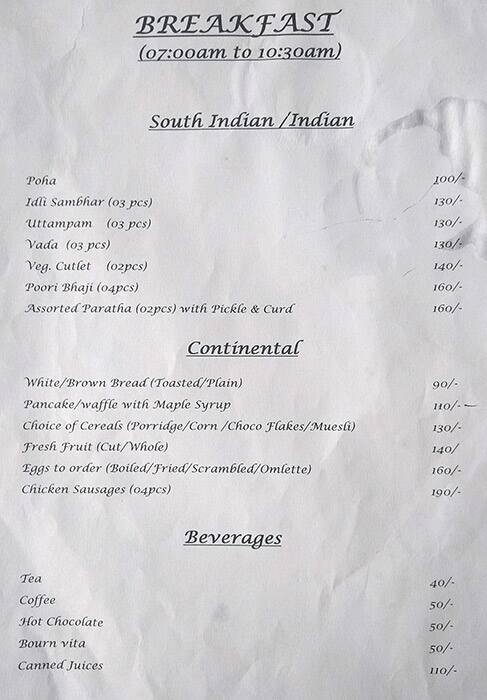 BREAKFAST
(07:00am to 10:30am)
South Indian /Indian
Poha 100/-
Idli Sambhar (03 pcs) 130/-
Uttampam (03 pcs) 130/-
Vada (03 pcs) 130/-
Veg. Cutlet (02pcs) 140/-
Poori Bhaji (04pcs) 160/-
Assorted Paratha (02pcs) with Pickle & Curd 160/-
Continental
White/Brown Bread (Toasted/Plain) 90/-
Pancake/waffle with Maple Syrup 110/-
Choice of Cereals (Porridge/Corn /Choco Flakes/Muesli) 130/-
Fresh Fruit (Cut/Whole) 140/
Eggs to order (Boiled/Fried/Scrambled/Omlette) 160/-
Chicken Sausages (04pcs) 190/-
Beverages
Tea 40/-
Coffee 50/-
Hot Chocolate 50/-
Bourn vita 50/-
Canned Juices 110/-